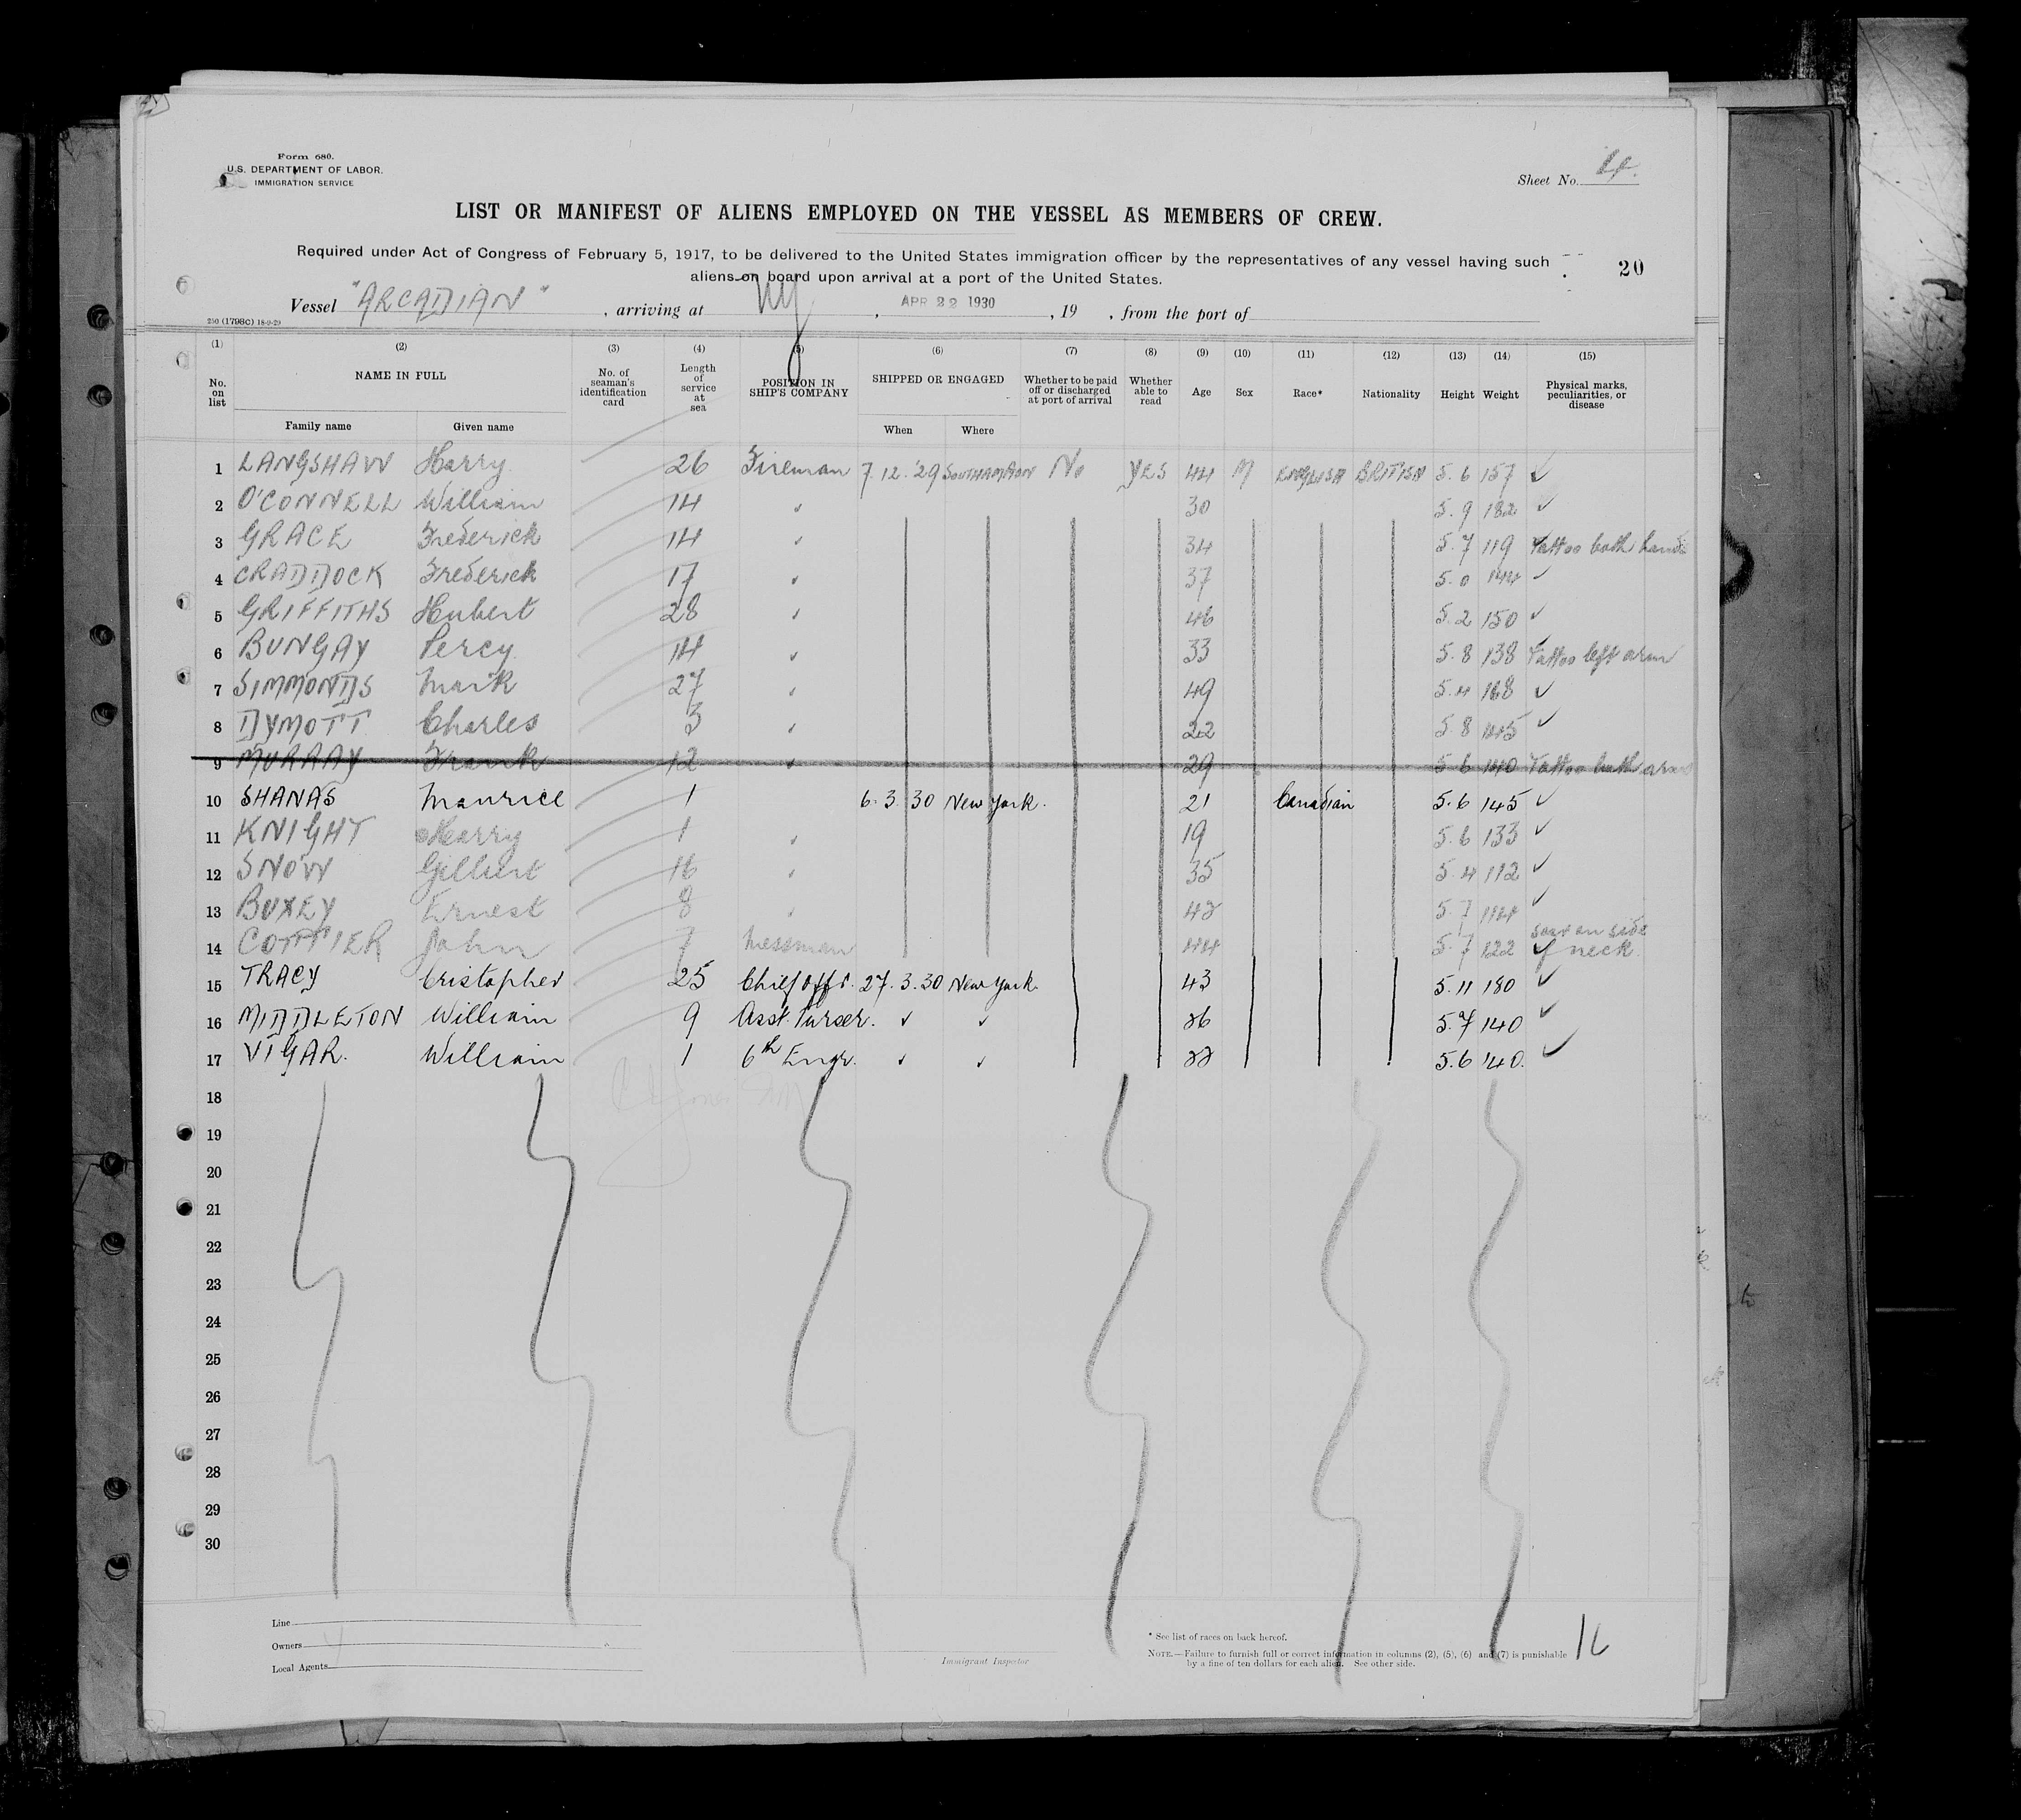 Form 680.
U.S. DEPARTMENT OF LABOR.
IMMIGRATION SERVICE
Sheet No. 4.
LIST OR MANIFEST OF ALIENS EMPLOYED ON THE VESSEL AS MEMBERS OF CREW.
Required under Act of Congress of February 5, 1917, to be delivered to the United States immigration officer by the representatives of any vessel having such
aliens on board upon arrival at a port of the United States.
20
Vessel "ARCADIAN", arriving at NY, APR 22 1930, 19 , from the port of
250 (1798C) 18-9-29
(1) (2) (3) (4) (5) (6) (7) (8) (9) (10) (11) (12) (13) (14) (15)
No. on list NAME IN FULL No. of seaman's identification card Length of service at sea POSITION IN SHIP'S COMPANY SHIPPED OR ENGAGED Whether to be paid off or discharged at port of arrival Whether able to read Age Sex Race* Nationality Height Weight Physical marks, peculiarities, or disease
Family name Given name When Where
1 LANGSHAW Harry 26 Fireman 7.12.'29 SOUTHAMPTON No YES 44 M ENGLISH BRITISH 5.6 157 ✓
2 O'CONNELL William 14 ✓ 30 5.9 182 ✓
3 GRACE Frederick 14 ✓ 34 5.7 119 Tattoo both hands
4 CRADDOCK Frederick 17 ✓ 37 5.0 144 ✓
5 GRIFFITHS Hubert 28 ✓ 46 5.2 150 ✓
6 BUNGAY Percy 14 ✓ 33 5.8 138 Tattoo left arm
7 SIMMONDS Mark 27 ✓ 49 5.4 168 ✓
8 DYMOTT Charles 3 ✓ 22 5.8 145 ✓
9 MURRAY Frank 12 ✓ 29 5.6 140 Tattoo both arms
10 SHANAS Maurice 1 6.3.30 New York. 21 Canadian 5.6 145 ✓
11 KNIGHT Harry 1 ✓ 19 5.6 133 ✓
12 SNOW Gilbert 16 ✓ 35 5.4 112 ✓
13 BUXEY Ernest 8 ✓ 42 5.7 114 ✓
14 COTTIER John 7 Messman 44 5.7 122 scar on side of neck.
15 TRACY Cristopher 25 Chief offr. 27.3.30 New York. 43 5.11 180 ✓
16 MIDDLETON William 9 Asst. Purser. ✓ ✓ 26 5.7 140 ✓
17 VIGAR. William 1 6th Engr. ✓ ✓ 22 5.6 140. ✓
18
19
20
21
22
23
24
25
26
27
28
29
30
Line
Owners
Local Agents
Immigrant Inspector
* See list of races on back hereof.
NOTE.—Failure to furnish full or correct information in columns (2), (5), (6) and (7) is punishable
by a fine of ten dollars for each alien. See other side.
16